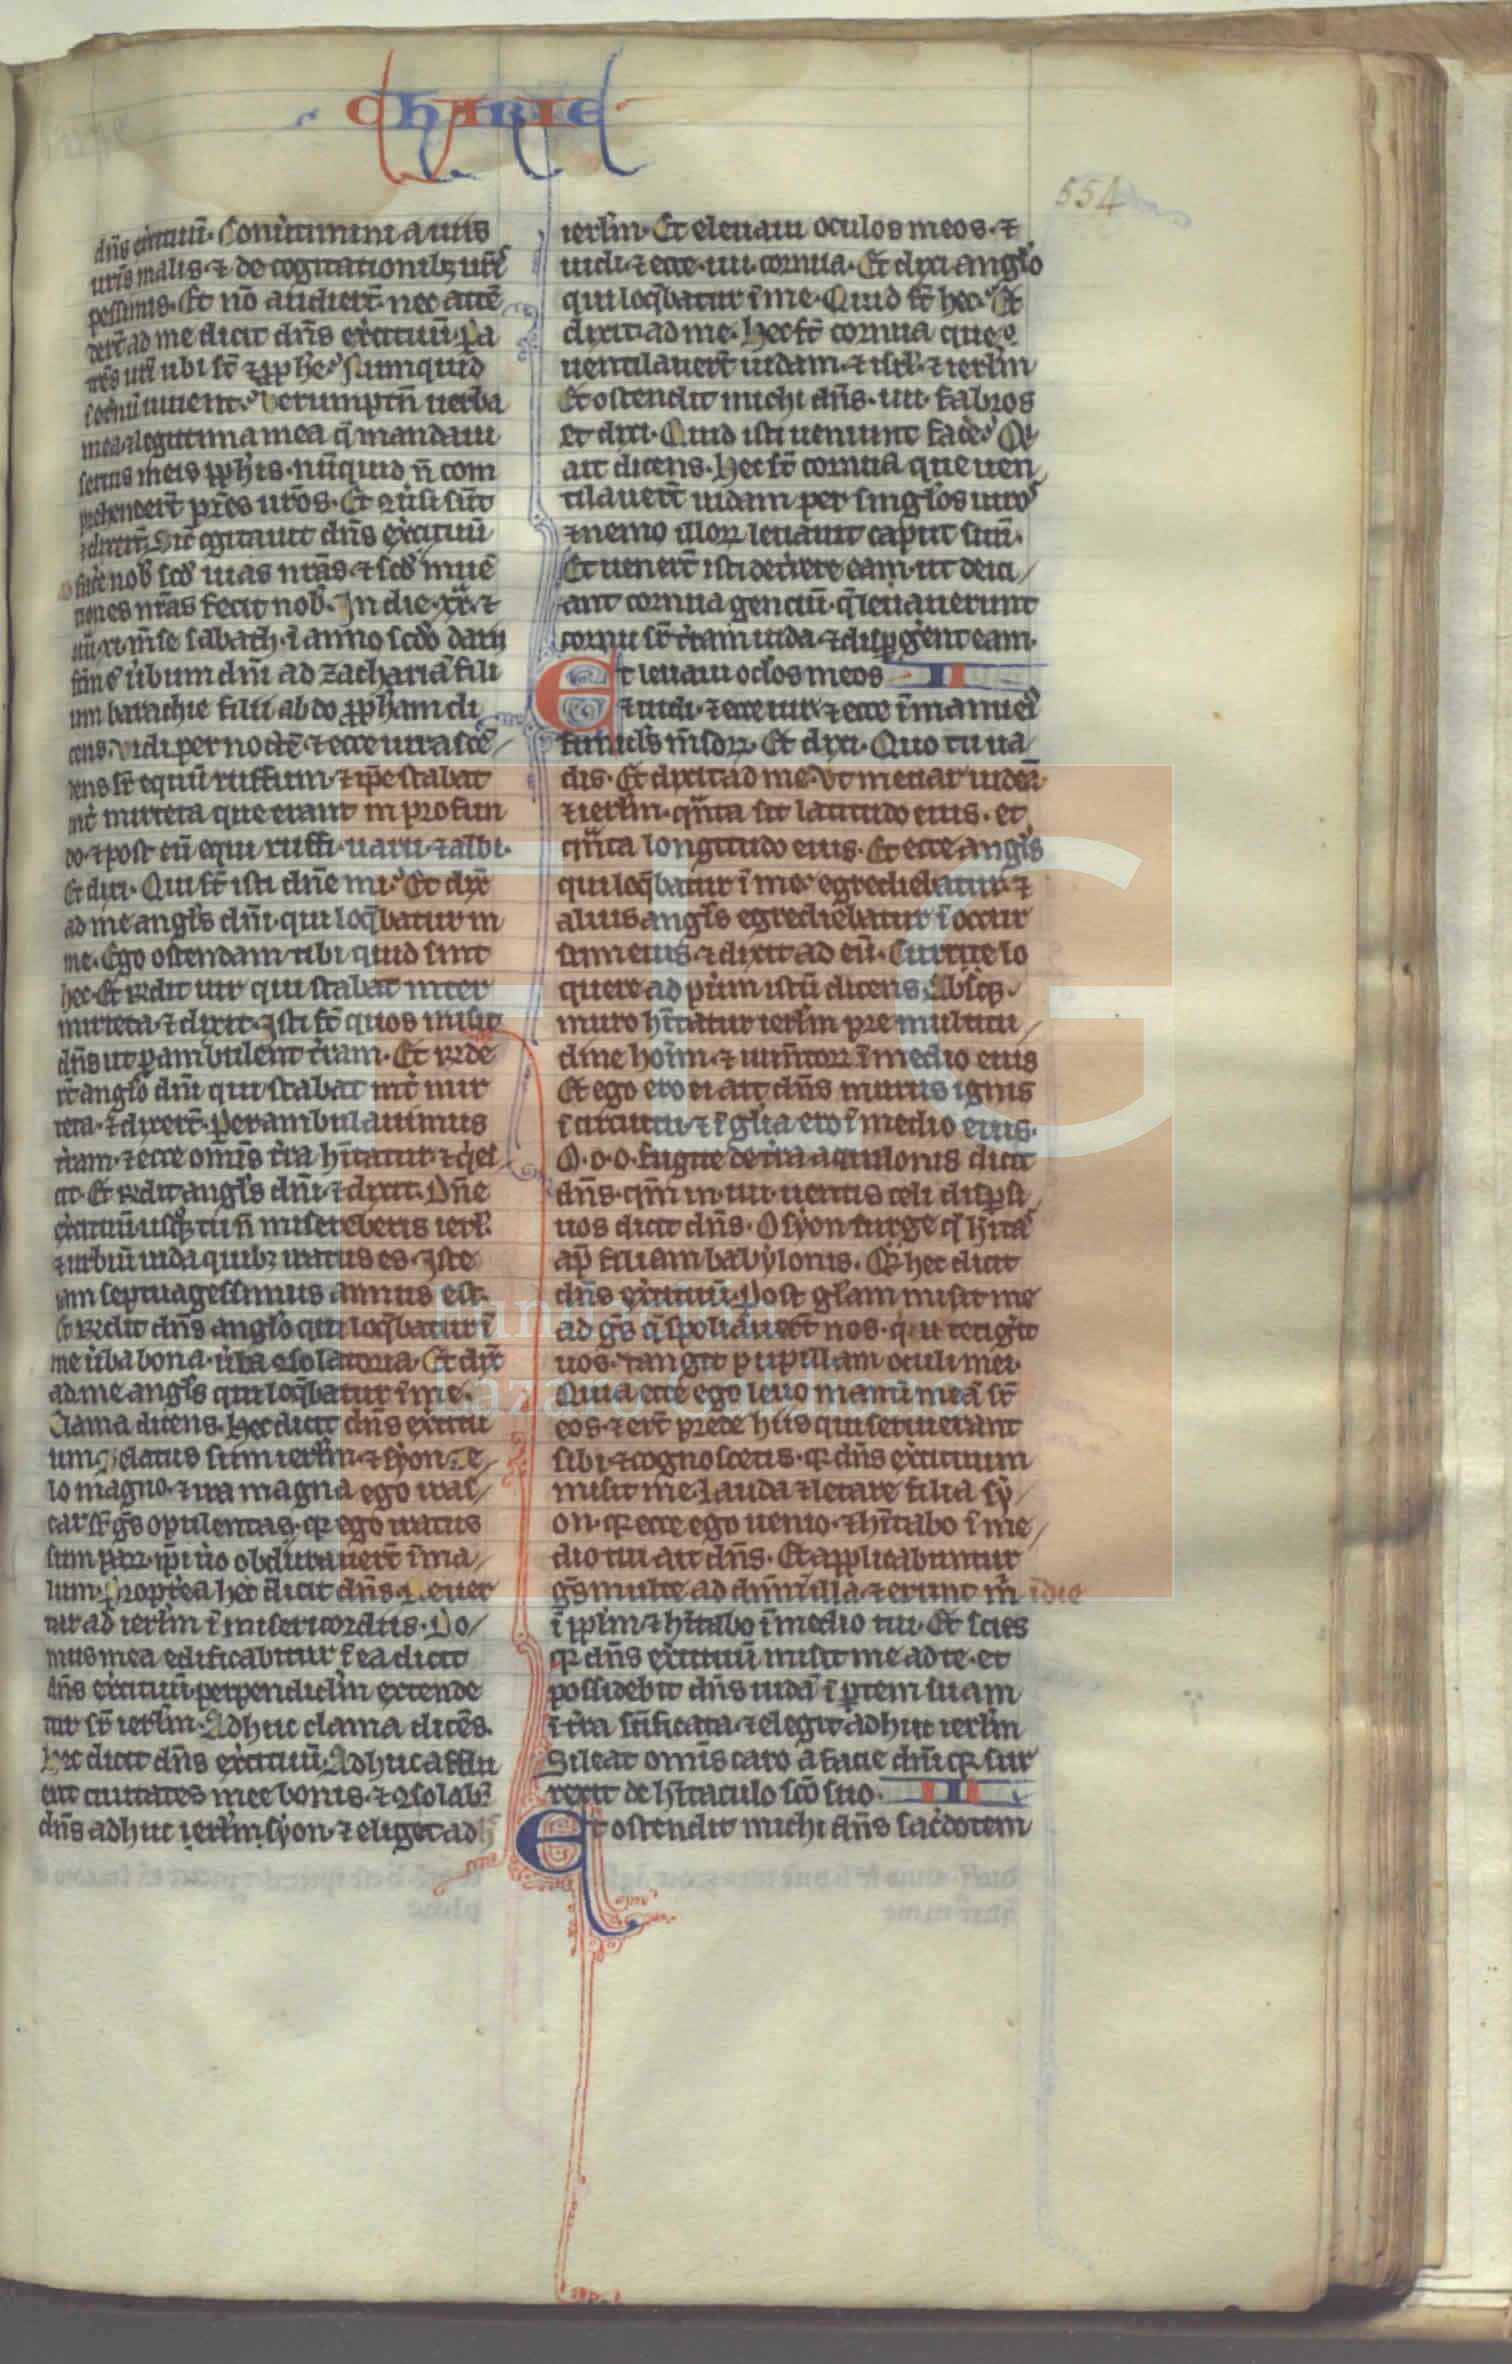 CHARIE
554
dn̄s exc̓ituū. Conu̓timini a uiis
ur̄is malis ⁊ de cogitationibꝫ ur̄is
pessimis. Et nō audier̄t nec attē
der̄t ad me dicit dn̄s exc̓ituū. Pa
tr̄s ur̄i ubi st̄ ⁊ ꝓphe. Numquid
uiuent. Verumptn̄ uerba
mea ⁊ legittima mea q̄ mandaui
seruis meis ꝓphīs. nūquid n̄ com
prehender̄t pr̄es ur̄os. Et ꝯu̓si sūt
⁊ dixer̄t. Sic̄ cogitauit dn̄s exc̓ituū
fac̓e nob̄ scd̄ uias nr̄as ⁊ scd̄ inuē
tiones nr̄as fecit nob̄. In die .xx. ⁊
.xi. mīse sabath. ī anno scd̄o darii
u̓bum dn̄i ad zachariā fili
um barachie filii abdo ꝓphetam di
cens. Vidi per noctē ⁊ ecce uir ascē
dens sr̄ equū ruffum. ⁊ ip̄e stabat
int̓ mirteta que erant in profun
do. ⁊ post eū equi ruffi. uarii. ⁊ albi.
Et dixi. Qui st̄ isti dn̄e mi. Et dix̄
ad me angl̄s dn̄i. qui loq̄batur in
me. Ego ostendam tibi quid sint
hec. Et rn̄dit uir qui stabat inter
mirteta. ⁊ dixit. Isti st̄ quos misit
dn̄s ut ꝑambulent t̓ram. Et rn̄de
rt̄ anglo dn̄i qui stabat int̓ mir
teta. ⁊ dixer̄t. Perambulauimus
t̓ram. ⁊ ecce omīs t̓ra hītatur ⁊ q̓es
cit. Et rn̄dit angl̄s dn̄i ⁊ dixit. Dn̄e
exc̓ituū usq̄quo tu n̄ misereberis ierl̄m
⁊ urbiū iuda quibꝫ iratus es. Iste
iam septuagessimus annus est.
Et rn̄dit dn̄s anglo qui loq̄batur ī
me u̓ba bona. u̓ba ꝯsolatoria. Et dix̄
ad me angl̄s qui loq̄batur ī me.
Clama dicens. Hec dicit dn̄s exc̓itu
um. Zelatus sum ierl̄m. ⁊ syon ze
lo magno. ⁊ ira magna ego iras
car sr̄ gn̄s opulentas. qr̄ ego iratus
sum parū. ip̄i u̓o obdurauer̄t ī ma
lum. Propt̓ea hec dicit dn̄s. Reuer
tar ad ierl̄m ī misericordiis. Do
mus mea edificabitur ī ea dicit
dn̄s exc̓ituū. perpendicl̄m extende
tur sr̄ ierl̄m. Adhuc clama dicēs.
Hec dicit dn̄s exc̓ituū. Adhuc afflu
ent ciuitates mee bonis. ⁊ ꝯsolabr̄
dn̄s adhuc ierl̄m. syon. ⁊ eliget adh̄
ierl̄m. Et eleuaui oculos meos. ⁊
uidi. ⁊ ecce .iiii. cornua. Et dixi anglo
qui loq̄batur ī me. Quid st̄ hec. Et
dixit ad me. Hec st̄ cornua que
uentilauer̄t iudam. ⁊ isrl̄. ⁊ ierl̄m
Et ostendit michi dn̄s .iiii. fabros
et dixi. Quid isti ueniunt fac̓e. Q
ait dicens. Hec st̄ cornua que uen
tilauer̄t iudam per singl̄os uiros
⁊ nemo illoꝝ leuauit caput suū.
Et uener̄t isti det̓rere eam. ut deici
ant cornua genciū. q̄ leuauerunt
cornu sr̄ t̓ram iuda. ⁊ disꝑgent eam.
Et leuaui oclōs meos II
⁊ uidi. ⁊ ecce uir. ⁊ ecce ī manu ei̓
funicl̄s mīsoꝝ. Et dixi. Quo tu ua
dis. Et dixit ad me. Vt metiar iudeā
⁊ ierl̄m. qn̄ta sit latitudo eius. et
qn̄ta longitudo eius. Et ecce angl̄s
qui loq̄batur ī me. egrediebatur. ⁊
alius angl̄s egrediebatur ī occur
sum eius. ⁊ dixit ad eū. Curre lo
quere ad pu̓um istū dicens. Absq̄
muro hītatur ierl̄m. pre multitu
dine hoīm. ⁊ iumtoꝝ ī medio eius
Et ego ero ei ait dn̄s murus ignis
ī circuitu. ⁊ ī gl̄ia ero ī medio eius.
O. o. o. fugite de t̓ra aquilonis dicit
dn̄s. qm̄ in .iiii. uentis celi disꝑsi
uos dicit dn̄s. O syon surge q̄ hītas
ap̄ filiam babylonis. Qr̄ hec dicit
dn̄s exc̓ituū. Post gl̄am misit me
ad gn̄s q̄ spoliauer̄t nos. q̄ .n. tetig̓it
uos. tangit pupillam oculi mei.
Quia ecce ego leuo manū meā sr̄
eos. ⁊ er̄t prede hiis qui seruierant
sibi. ⁊ cognoscetis. qr̄ dn̄s exc̓ituum
misit me. Lauda ⁊ letare filia sy
on. qr̄ ecce ego uenio. ⁊ hītabo ī me
dio tui ait dn̄s. Et applicabuntur
gn̄s multe ad dn̄m ī die illa. ⁊ erunt m̄
ī ppl̄m. ⁊ hītabo ī medio tui. Et scies
qr̄ dn̄s exc̓ituū misit me ad te. et
possidebit dn̄s iudā ī ꝑtem suam
ī t̓ra sc̄ificata. ⁊ elegit adhuc ierl̄m
Sileat omīs caro a facie dn̄i. qr̄ sur
rexit de hītaculo sc̄o suo. III
Et ostendit michi dn̄s sac̓dotem
FLG
Fundación
Lázaro Galdiano